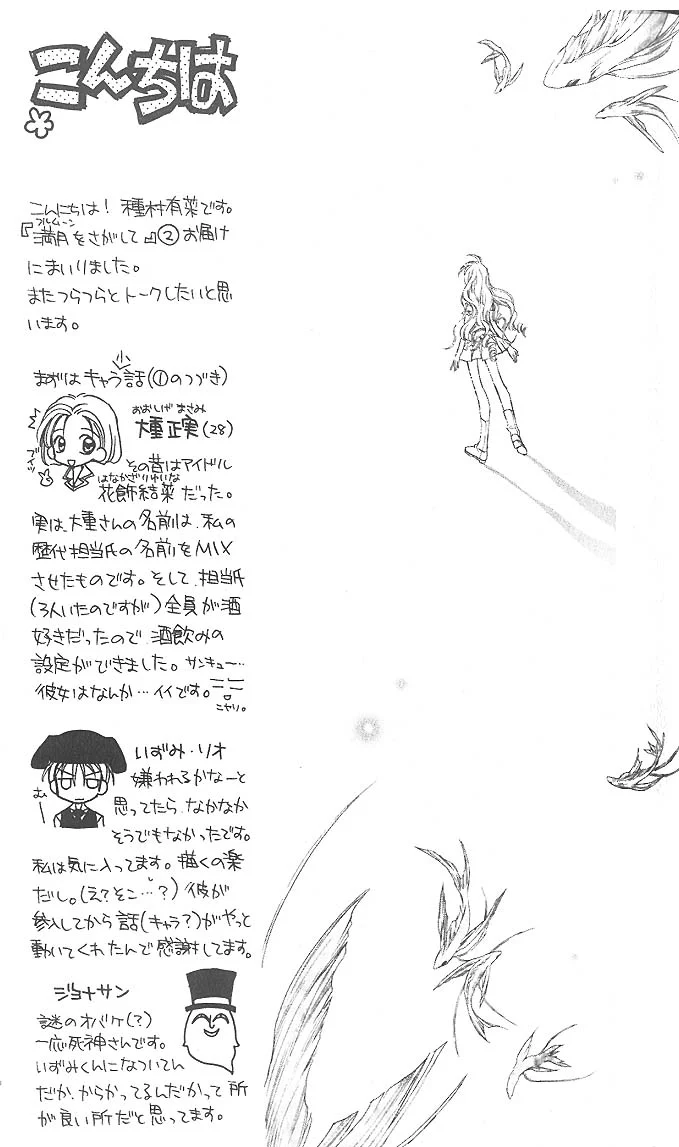 こんちは
こんにちは！ 種村有菜です。
フルムーン
『満月をさがして』② お届け
にまいりました。
またつらつらとトークしたいと思
います。
小
まずは キャラ話(①のつづき)
ブイッ
おおしげ まさみ
大重正実(28)
その昔はアイドル
はなかざり ゆいな
花飾結菜 だった。
実は、大重さんの名前は、私の
歴代担当氏の名前をMIX
させたものです。そして、担当氏
(3人いたのですが)全員が酒
好きだったので、酒飲みの
設定ができました。サンキュー…
彼女はなんか… イイです。
ニヤリ。
いずみ・リオ
むー
嫌われるかなーと
思ってたら、なかなか
そうでもなかったです。
私は気に入ってます。描くの楽
だし。(え？そこ…？) 彼が
参入してから話(キャラ？)がやっと
動いてくれたんで感謝してます。
ジョナサン
謎のオバケ(？)
一応死神さんです。
いずみくんになついてん
だか、からかってるんだかって所
が良い所だと思ってます。